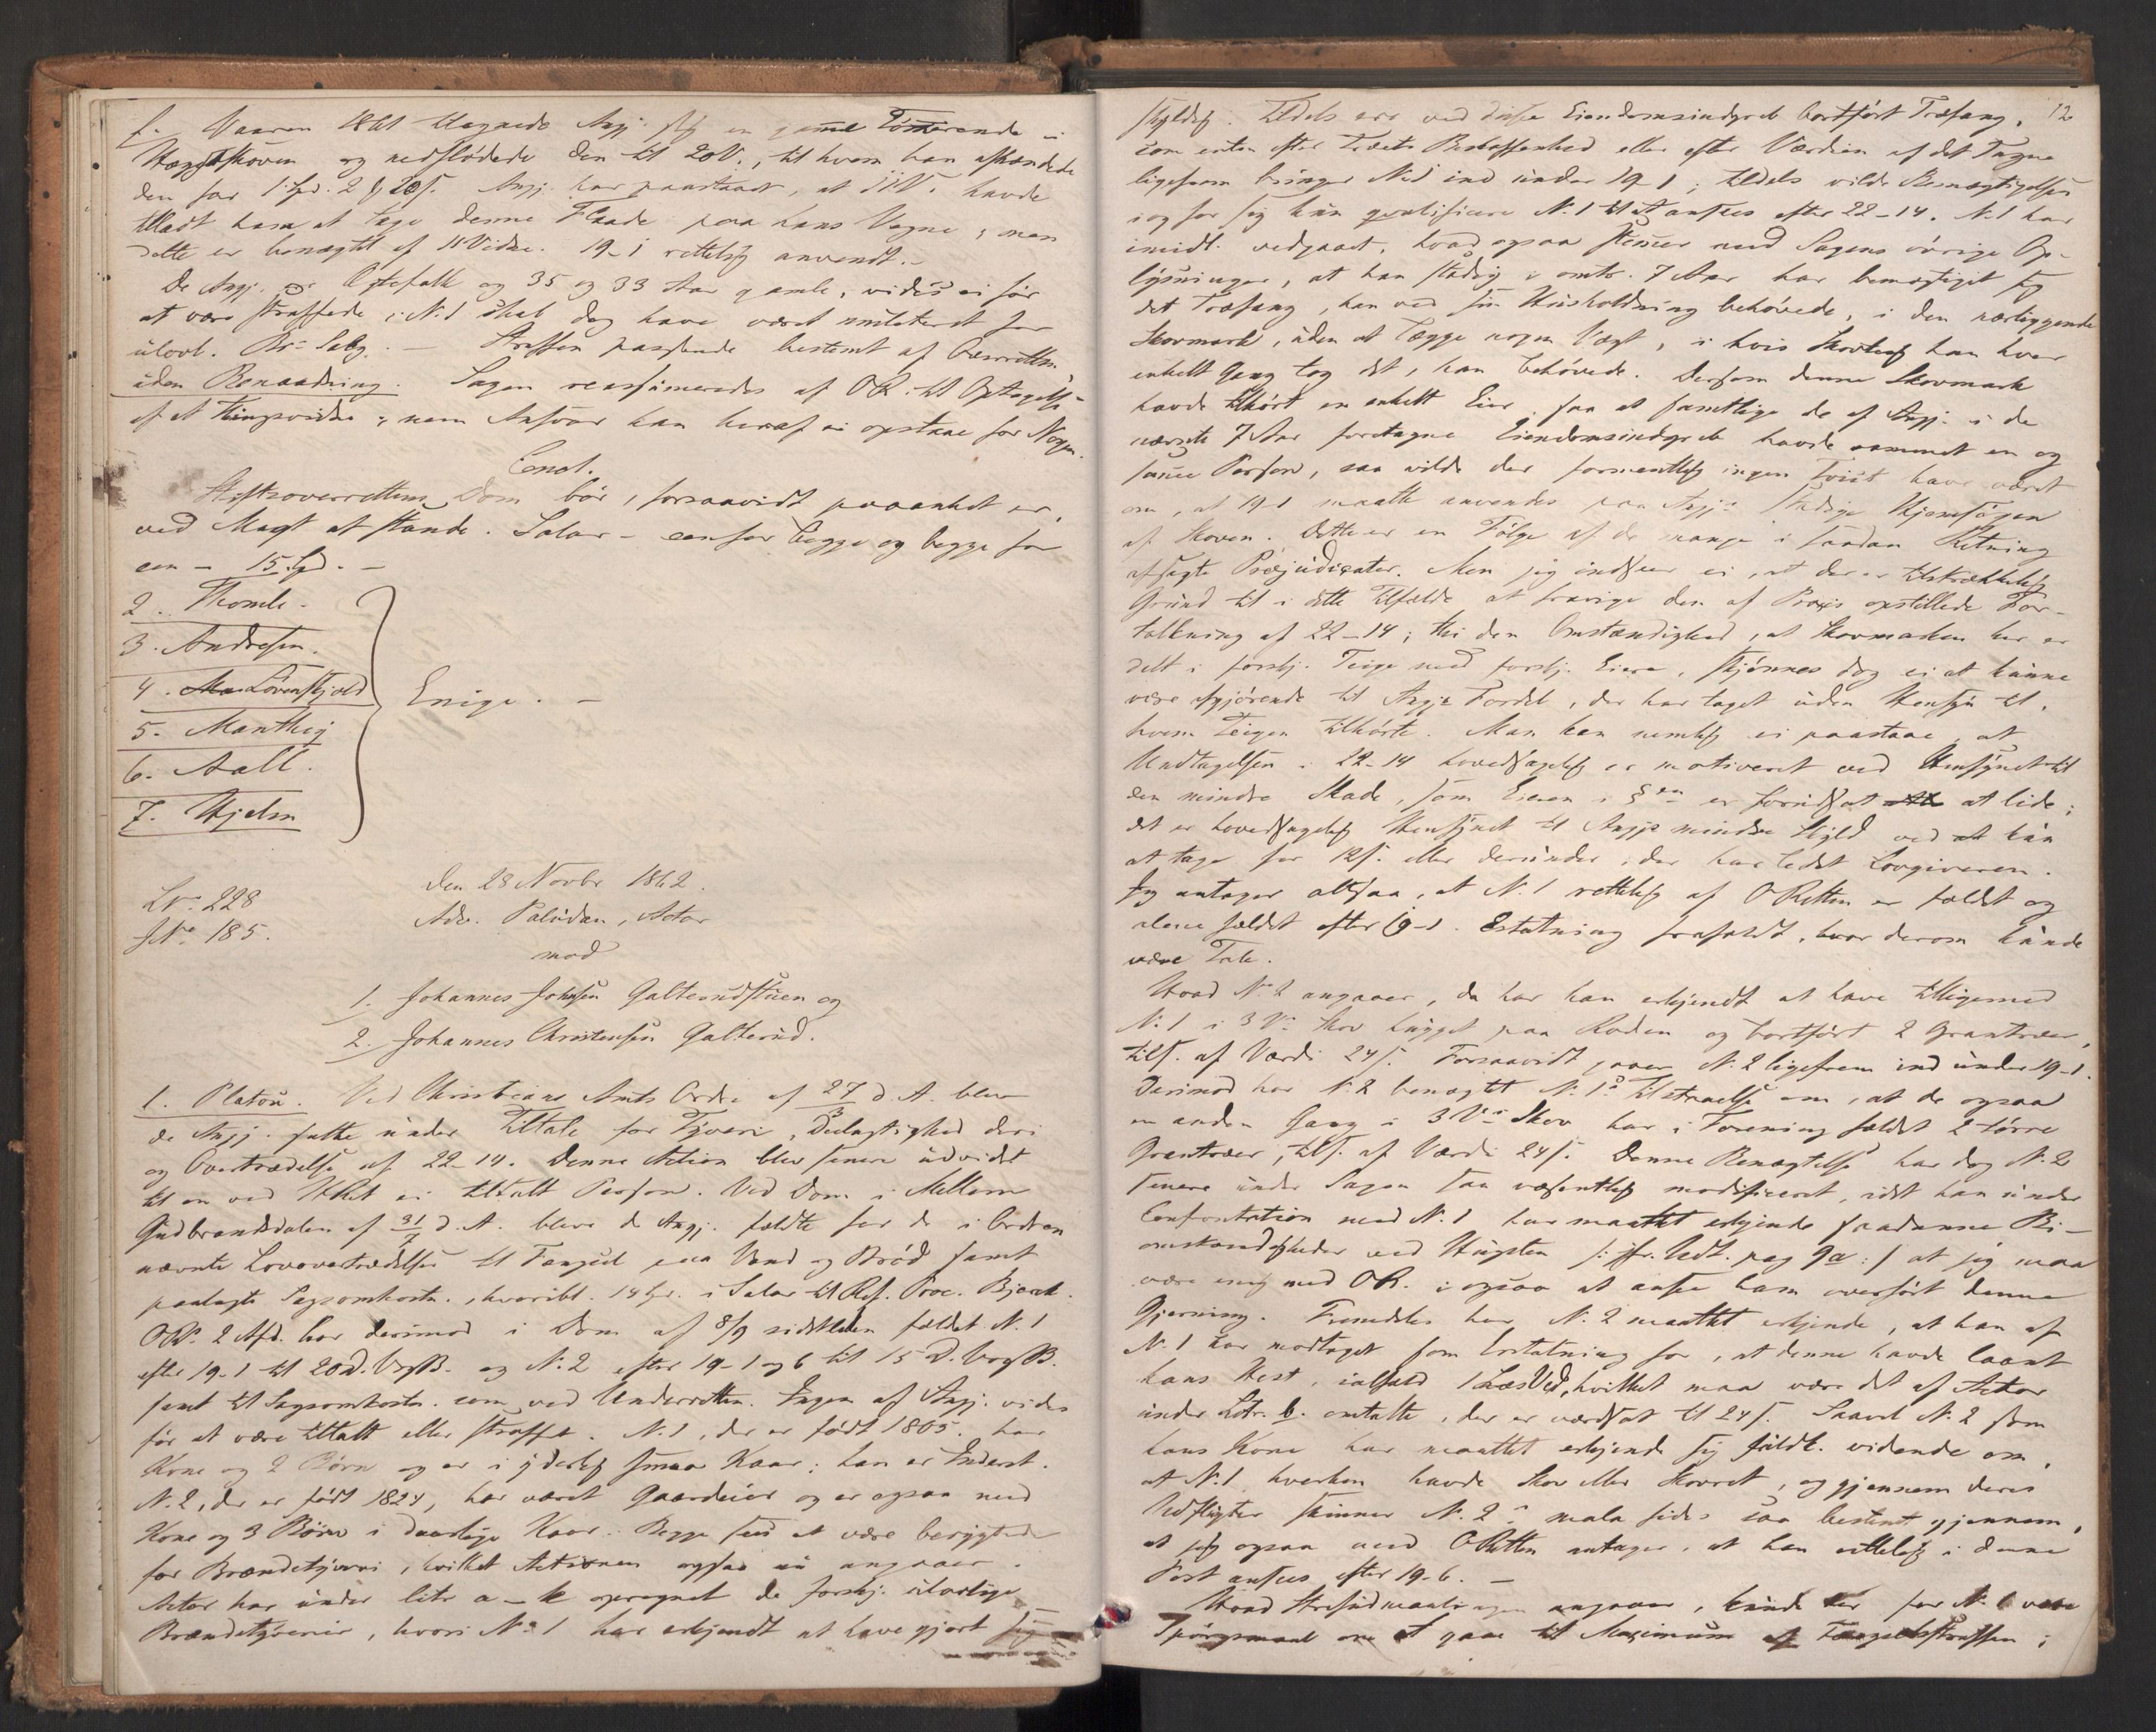 f. Vaaren 1861 tilegnede Angj. sig en gammel Tømmerende i
Skoven og nedflødede den til 20V., til hvem han afhændede
den for 1 Spd. 2 ƒ 20 s. Angj. har paastaaet, at 11V. havde
tilladt ham at tage denne Flaade paa hans Vegne, men
dette er benægtet af 11 Vidne. 19-1 rettelig anvendt.-
De Angj. er Ægtefolk og 35 og 33 Aar gamle, vides ei før
at være straffede; N.1 skal dog have været mulcteret for
ulovl. Br. Salg. - Straffen passende bestemt af Overretten
uden Benaadning. Sagen reassumeredes af OR. til Optagelse
af et Thingsvidne; men Ansvar kan heraf ei opstaae for Nogen.
Concl.
Stiftsoverrettens Dom bør, forsaavidt paaanket er,
ved Magt at stande. Salar - een for begge og begge for
een - 15 Spd. -
2. Thomle.
3. Andresen.
4. Løvenskjold
5. Manthey
6. Aall.
7. Hjelm
Enige. -
Lr. 228
JNo 185.
Den 28 Novbr 1862.
Adv. Paludan, Actor
mod
1. Johannes Johnsen Galterudstuen og
2. Johannes Christensen Galterud.
1. Platou. Ved Christians Amts Ordre af 27/3 d. A. blev
de Angj. satte under Tiltale for Tyveri, Delagtighed deri
og Overtrædelse af 22-14. Denne Action blev senere udvidet
til en ved HRet ei tiltalt Person. Ved Dom i Mellem
Gudbrandsdalen af 31/7 d. A. bleve de Angj. fældte for de i Ordren
nævnte Lovovertrædelser til Fængsel paa Vand og Brød samt
paalagte Sagsomkostn., hvoribl. 14 Spd. i Salar til Ref. Proc. Bjerck.
ORs 2 Afd. har derimod i Dom af 8/9 sidstleden fældet N.1
efter 19-1 til 20 D. VogB. og N.2 efter 19-1 og 6 til 15 D. VogB.
samt til Sagsomkostn. som ved Underretten. Ingen af Angj. vides
før at være tiltalt eller straffet. N.1, der er født 1805, har
Kone og 2 Børn og er i yderlig smaa Kaar; han er Inderst.
N.2, der er født 1824, har været Gaardeier og er ogsaa med
Kone og 3 Børn i daarlige Kaar. Begge sees at være berygtede
for Brændetyveri, hvilket Actionen ogsaa nu angaaer.
Actor har under litr. a - k opregnet de forskj. ulovlige
Brændetyverier, hvori No 1 har erkjendt at have gjort sig
12
skyldig. Tildels ere ved disse Eiendomsindgreb bortført Træfang,
som enten efter Træets Beskaffenhed eller efter Værdien af det Tagne
ligefrem bringer N.1 ind under 19-1; tildels vilde Bemægtigelsen
i og for sig kun qvalificere N.1 til at ansees efter 22-14. N.1 har
imidl. vedgaaet, hvad ogsaa stemmer med Sagens øvrige Op-
lysninger, at han stadig i omtr. 7 Aar har bemægtiget sig
det Træfang, han ved sin Huusholdning behøvede, i den nærliggende
Skovmark, uden at lægge nogen Vægt, i hvis Skovteig han hver
enkelt Gang tog det, han behøvede. Dersom denne Skovmark
havde tilhørt en enkelt Eier, saa at samtlige de af Angj. i de
nævnte 7 Aar foretagne Eiendomsindgreb havde rammet en og
samme Person, saa vilde der formentlig ingen Tvist have været
om, at 19-1 maatte anvendes paa Angjs stadige Hjemsøgen
af Skoven. Dette er en Følge af de mange i saadan Retning
afsagte Præjudicater. Men jeg indseer ei, at der er tilstrækkelig
Grund til i dette Tilfælde at fravige den af Praxis opstillede For-
tolkning af 22-14; thi den Omstændighed, at Skovmarken her er
delt i forskj. Teige med forskj. Eiere, skjønnes dog ei at kunne
være afgjørende til Angjs Fordel, der har taget uden Hensyn til,
hvem Teigen tilhørte. Man kan nemlig ei paastaae, at
Undtagelsen i 22-14 hovedsagelig er motiveret ved Hensynet til
den mindre Skade, som Eieren i §en er forudsat at lide;
det er hovedsagelig Hensynet til Angjs mindre Skyld ved at kun
at tage for 12 s. eller derunder, der har ledet Lovgiveren.
Jeg antager altsaa, at N.1 rettelig af ORetten er fældet og
alene fældet efter 19-1. Erstatning frafaldt, hvor derom kunde
være Tale.
Hvad No 2 angaaer, da har han erkjendt at have tilligemed
N.1 i 3 Vs Skov hugget paa Roden og bortført 2 Grantræer,
tils. af Værdi 24 s. Forsaavidt gaaer N.2 ligefrem ind under 19-1.
Derimod har N.2 benægtet N.1s Tilstaaelse om, at de ogsaa
en anden Gang i 3 Vs Skov har i Forening fældet 2 tørre
Grantræer, tils. af Værdi 24 s. Denne Benægtelse har dog N.2
senere under Sagen saa væsentlig modificeret, idet han under
Confrontation med N.1 har maattet erkjende saadanne Bi-
omstændigheder ved Hugsten /: jfr. Udt. pag 9a :/ at jeg maa
være enig med OR. i ogsaa at ansee ham overført denne
Gjerning. Fremdeles har N.2 maattet erkjende, at han af
N.1 har modtaget som Erstatning for, at denne havde laant
hans Hest, ialfald 1 Læs Ved, hvilket maa være det af Actor
under Litr. b. omtalte, der er værdsat til 24 s. Saavel N.2 som
hans Kone har maattet erkjende sig fuldt vidende om,
at N.1 hverken havde Skov eller Skovret, og gjennem deres
Udflugter skinner N.2s mala fides saa bestemt gjennem,
at jeg ogsaa med ORetten antager, at han rettelig i denne
Post ansees efter 19-6. -
Hvad Strafudmaalingen angaaer, kunde der for N.1 være
Spørgsmaal om at gaae til Maximum af Fængselsstraffen;